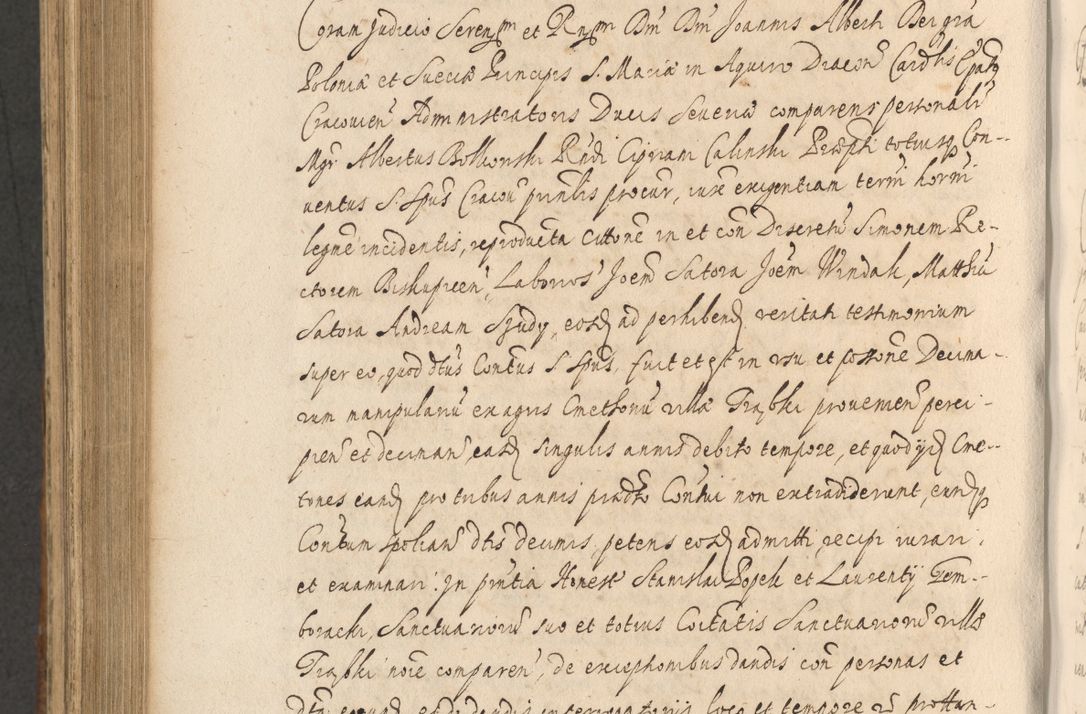 Coram Judicio Serenssm et Rnssm Dni Dni Joannis Alberti Dei gra
Poloniæ et Sueciæ Principis S. Mariæ in Aquiro Diacon Cardlis Epatq
Cracovien Administratoris Ducis Severiæ comparens personalr
Mgr Albertus Bolkonski Rndi Cipriani Calinski Præpti totiusq Con-
ventus S. Spus Cracov prinlis procur, iure exigentiam termi hormi
legme incidentis, reproducta cittone in et con Discretu Simonem Re-
ctorem Biskupicen, Laborios Joem Satora Joem Windak, Matthiu
Satora Andream Sgudy, eosd ad perhibend veritati testimonium
super eo, quod dtus Contus S. Spus, fuit et est in usu et possone Decima-
rum manipulariu ex agris Cmethonu villæ Trąbki provenien perci-
pien et deciman, easd singulis annis debito tempore, et quod ijd Cme-
tones easd pro tribus annis prædto Contui non extradiderunt, eundq
Contum spoliar dtis decimis, petens eosd admitti, recipi iurari,
et examinari: In pntia Honest Stanislai Popek et Laurentij Gem-
boracki, Sanctuarioru suo et totius Coitatis Sanctuarioru villæ
Trąbki noie comparen, de exceptionibus dandis con personas et
dta eorund, et de dandis interrogatorijs loco et tempore